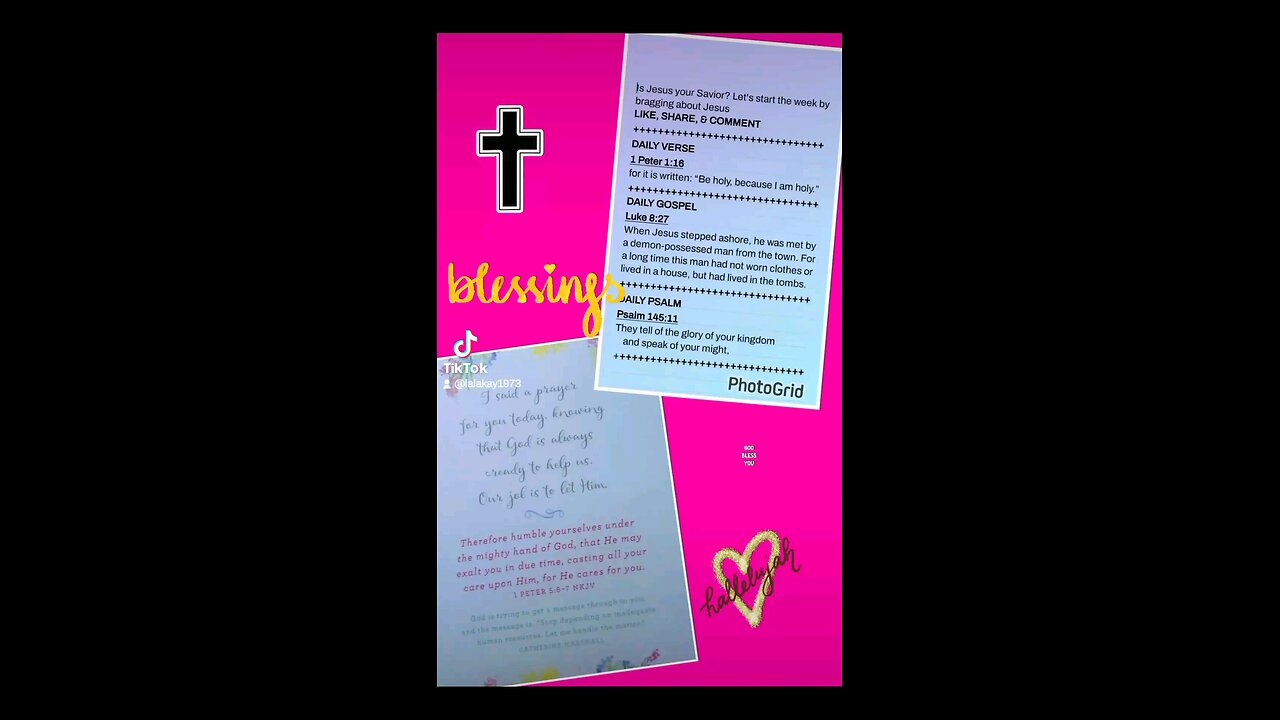 Is Jesus your Savior? Let's start the week by
bragging about Jesus
LIKE, SHARE, & COMMENT
+++++++++++++++++++++++++++++++
DAILY VERSE
1 Peter 1:16
for it is written: “Be holy, because I am holy.”
+++++++++++++++++++++++++++++++
DAILY GOSPEL
Luke 8:27
When Jesus stepped ashore, he was met by
a demon-possessed man from the town. For
a long time this man had not worn clothes or
lived in a house, but had lived in the tombs.
+++++++++++++++++++++++++++++++
DAILY PSALM
Psalm 145:11
They tell of the glory of your kingdom
and speak of your might,
+++++++++++++++++++++++++++++++
PhotoGrid
blessings
TikTok
@lalakay1973
I said a prayer
for you today, knowing
that God is always
ready to help us.
Our job is to let Him.
Therefore humble yourselves under
the mighty hand of God, that He may
exalt you in due time, casting all your
care upon Him, for He cares for you.
1 PETER 5:6-7 NKJV
God is trying to get a message through to you,
and the message is: "Stop depending on inadequate
human resources. Let me handle the matter."
CATHERINE MARSHALL
GOD
BLESS
YOU
hallelujah